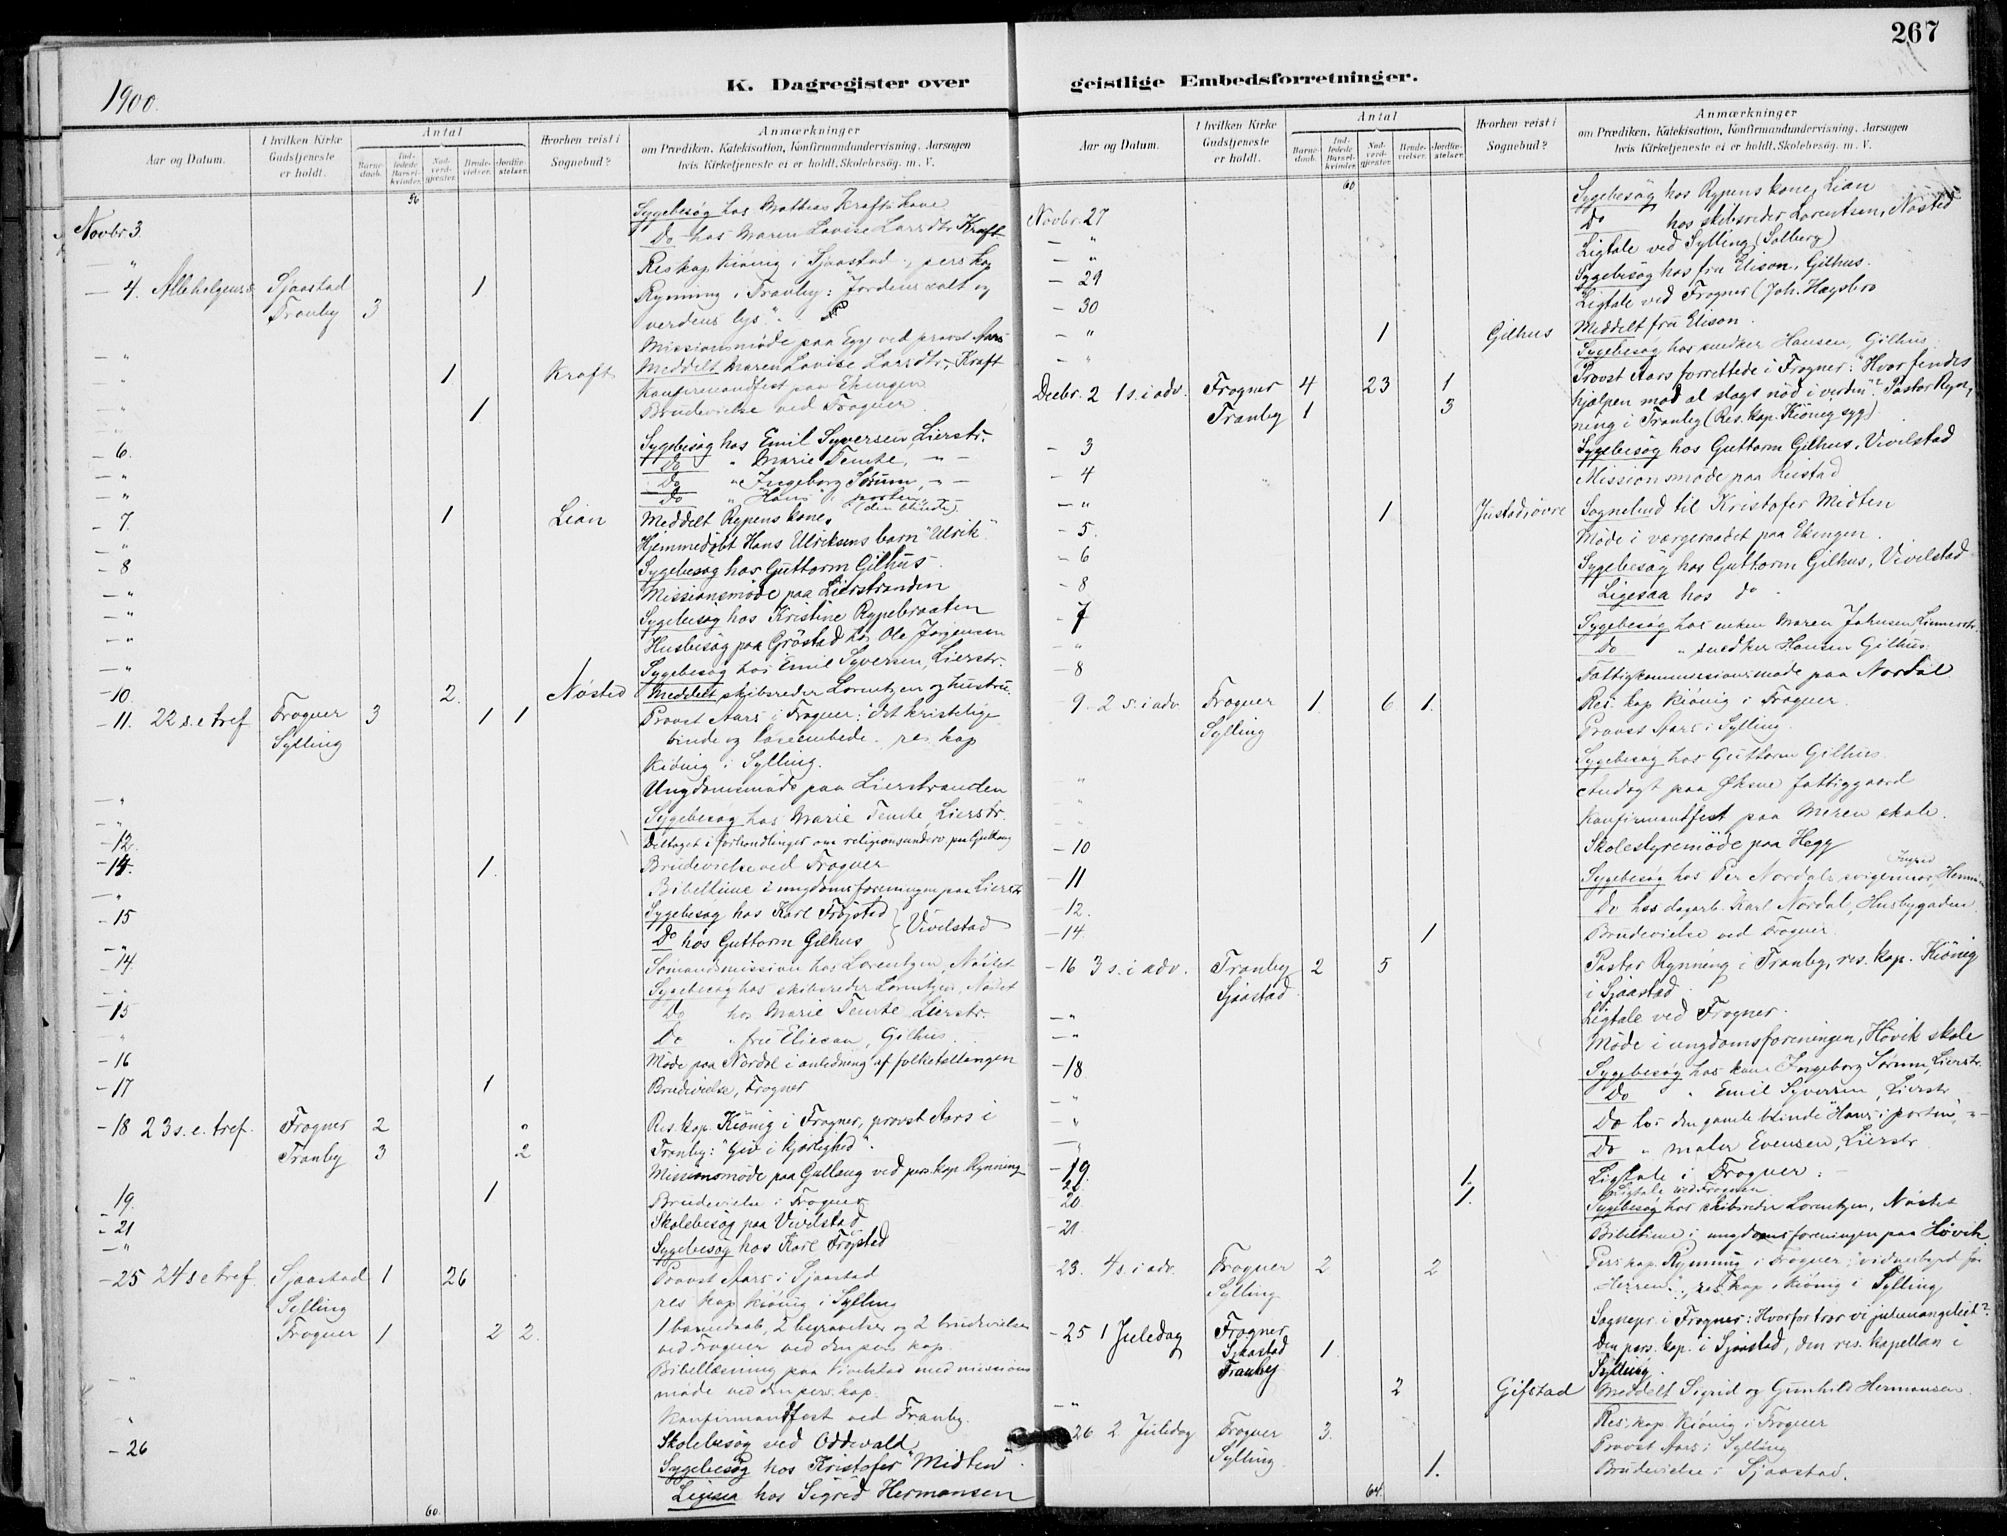 267
1900.
K. Dagregister over
geistlige Embedsforretninger.
Aar og Datum.
I hvilken Kirke Gudstjeneste er holdt.
Antal
Barnedaab.
Indledede Barselkvinder.
Nadverdgjester.
Brudevielser.
Jordfæstelser.
Hvorhen reist i Sognebud?
Anmærkninger
om Prædiken, Katekisation, Konfirmandundervisning, Aarsagen
hvis Kirketjeneste ei er holdt. Skolebesøg. m. V.
56
Novbr 3 Sygebesøg hos Mathias Krafts kone
Do hos Maren Lovise Larsdtr Kraft
— 4. Allehelgens Sjaastad 1 Res kap Kiönig i Sjaastad, pers kap
Tranby 3 Rynning i Tranby: "Jordens salt og
verdens lys".
— " Missionsmøde paa Egge ved provst Aars
— " 1 Kraft Meddelt Maren Lovise Larsdtr Kraft
Konfirmandfest paa Ekengen
— " 1 Brudevielse ved Frogner.
— 6. Sygebesøg hos Emil Syversen, Lierstr.
— " Do " Marie Temte, " –
— " Do " Ingeborg Sørum, " –
— " Do " "Hans i porten" (den blinde) –
— 7. 1 Lian Meddelt Rypens kone,
— " Hjemmedøbt Hans Ulriksens barn "Ulrik".
— 8 Sygebesøg hos Guttorm Gilhus.
— " Missionsmøde paa Lierstranden
— " Sygebesøg hos Kristine Rypebraaten
— " Husbesøg paa Grøstad hos Ole Jørgensen
— " Sygebesøg hos Emil Syversen, Lierstr.
— 10. 2. Nøsted Meddelt skibsreder Lorentzen og hustru.
— 11. 22 s. e tref Frogner 3 1 1 Provst Aars i Frogner: "Det kristelige
Sylling binde og løseembede. res. kap
Kiönig i Sylling.
— " Ungdomsmøde paa Lierstranden
— " Sygebesøg hos Marie Temte, Lierstr.
— 12. Deltaget i forhandlinger om religionsunderv. paa Gullaug
— 14. 1. Brudevielse ved Frogner
— " Bibeltime i ungdomsforeningen paa Lierstr
— 15 Sygebesøg hos Karl Frøjstad } Vivelstad
— " Do hos Guttorm Gilhus
— 14. Sømandsmission hos Lorentzen, Nøstet
— " Sygebesøg hos skibsreder Lorentzen, Nøstet
— 15 Do hos Marie Temte Lierstr.
— " Do " fru Elieson, Gilhus.
— 16 Møde paa Nordal i anledning af folketællingen
— 17 1 Brudevielse, Frogner
— 18 23 s. e. tref. Frogner 2 " Res. kap. Kiönig i Frogner, provst Aars i
Tranby 3 2 Tranby: "Giv i kjærlighed".
Missionsmøde paa Gullaug ved pers. kap. Rynning
— 19. 1 Brudevielse i Frogner
— 21 Skolebesøg paa Vivelstad
— " Sygebesøg hos Karl Frøjstad
— 25 24 s e tref. Sjaastad 1 26 Provst Aars i Sjaastad
Sylling res kap Kiönig i Sylling
Frogner 1 2 2. 1 barnedaab, 2 begravelser og 2 brudevielser
ved Frogner ved den pers. kap.
— " Bibellæsning paa Vivelstad med missions
møde ved den pers. kap.
— " Konfirmandfest ved Tranby.
— 26 Skolebesøg ved Oddevald
Sygebesøg hos Kristofer "Midten".
Ligesaa hos Sigrid Hermansen
60.
Aar og Datum.
I hvilken Kirke Gudstjeneste er holdt.
Antal
Barnedaab.
Indledede Barselkvinder.
Nadverdgjester.
Brudevielser.
Jordfæstelser.
Hvorhen reist i Sognebud?
Anmærkninger
om Prædiken, Katekisation, Konfirmandundervisning, Aarsagen
hvis Kirketjeneste ei er holdt. Skolebesøg. m. V.
60
Novbr. 27 Sygebesøg hos Rypens kone, Lian
— " Do hos skibsreder Lorentsen, Nøsted
— " Ligtale ved Sylling (Solberg)
— 29 Sygebesøg hos fru Elison, Gilhus.
— 30 Ligtale ved Frogner (Joh. Hægsbro
— " 1 Gilhus Meddelt fru Elison.
— " Sygebesøg hos snedker Hansen, Gilhus.
Decbr. 2 1 s. i adv. Frogner 4 23 1 Provst Aars forrettede i Frogner: "Hvor findes
Tranby 1 3 hjælpen mod al slags nød i verden?" Pastor Ryn-
ning i Tranby (Res. kap. Kiönig syg).
— 3 Sygebesøg hos Guttorm Gilhus, Vivelstad
— 4 Missionsmøde paa Reistad
— " 1 Justad øvre Sognebud til Kristofer Midten
— 5. Møde i værgeraadet paa Ekengen.
— 6 Sygebesøg hos Guttorm Gilhus, Vivelstad
— 8 Ligesaa hos do
— 7 Sygebesøg hos enken Maren Johnsen, Linnerstr.
— " Do " snedker Hansen Gilhus.
— 8 Fattigkommissionsmøde paa Nordal
9. 2 s. i adv Frogner 1 6 1. Res. kap Kiönig i Frogner.
Sylling Provst Aars i Sylling.
Sygebesøg hos Guttorm Gilhus.
" Andagt paa Øksne fattiggaard
" Konfirmandfest paa Meren skole.
— 10 Skolestyremøde paa Hegg
— 11 Sygebesøg hos Per Nordals svigermor, Ingrid
— 12. Do hos dagarb. Karl Nordal, Husbygaden.
— 14. 1 Brudevielse ved Frogner.
— 16 3 s. i adv. Tranby 2 5 Pastor Rynning i Tranby, res. kap. Kiönig
Sjaastad i Sjaastad.
— " Ligtale ved Frogner.
— " Møde i ungdomsforeningen, Høvik skole
— 18 Sygebesøg hos kone Ingeborg Sørum, Lierstr.
— " Do " Emil Syversen, Lierstr
— " Do hos den gamle blinde "Hans i porten", " –
— " Do " maler Evensen, Lierstr
— 19. 1. Ligtale i Frogner. –
Ligtale ved Frogner
— 20. 1. Sygebesøg hos skibsreder Lorentzen, Nøstet
— 21 Bibeltime i ungdomsforeningen paa Høvik
— 23. 4 s. i adv. Frogner 2 2 Pers kap. Rynning i Frogner: vidnesbyrd for
Sylling Herren", res. kap. Kiönig i Sylling.
— 25 1 Juledag Frogner Sognepr. i Frogner: Hvorfor tror vi juleevangeliet?
Sjaastad 1. Den pers. kap. i Sjaastad, den res. kapellan i
Tranby Sylling.
— " 2 Gifstad Meddelt Sigrid og Gunhild Hermansen.
26 2 Juledag Frogner 3. Res. kap. Kiönig i Frogner
Sylling Provst Aars i Sylling
1. Brudevielse i Sjaastad.
64.